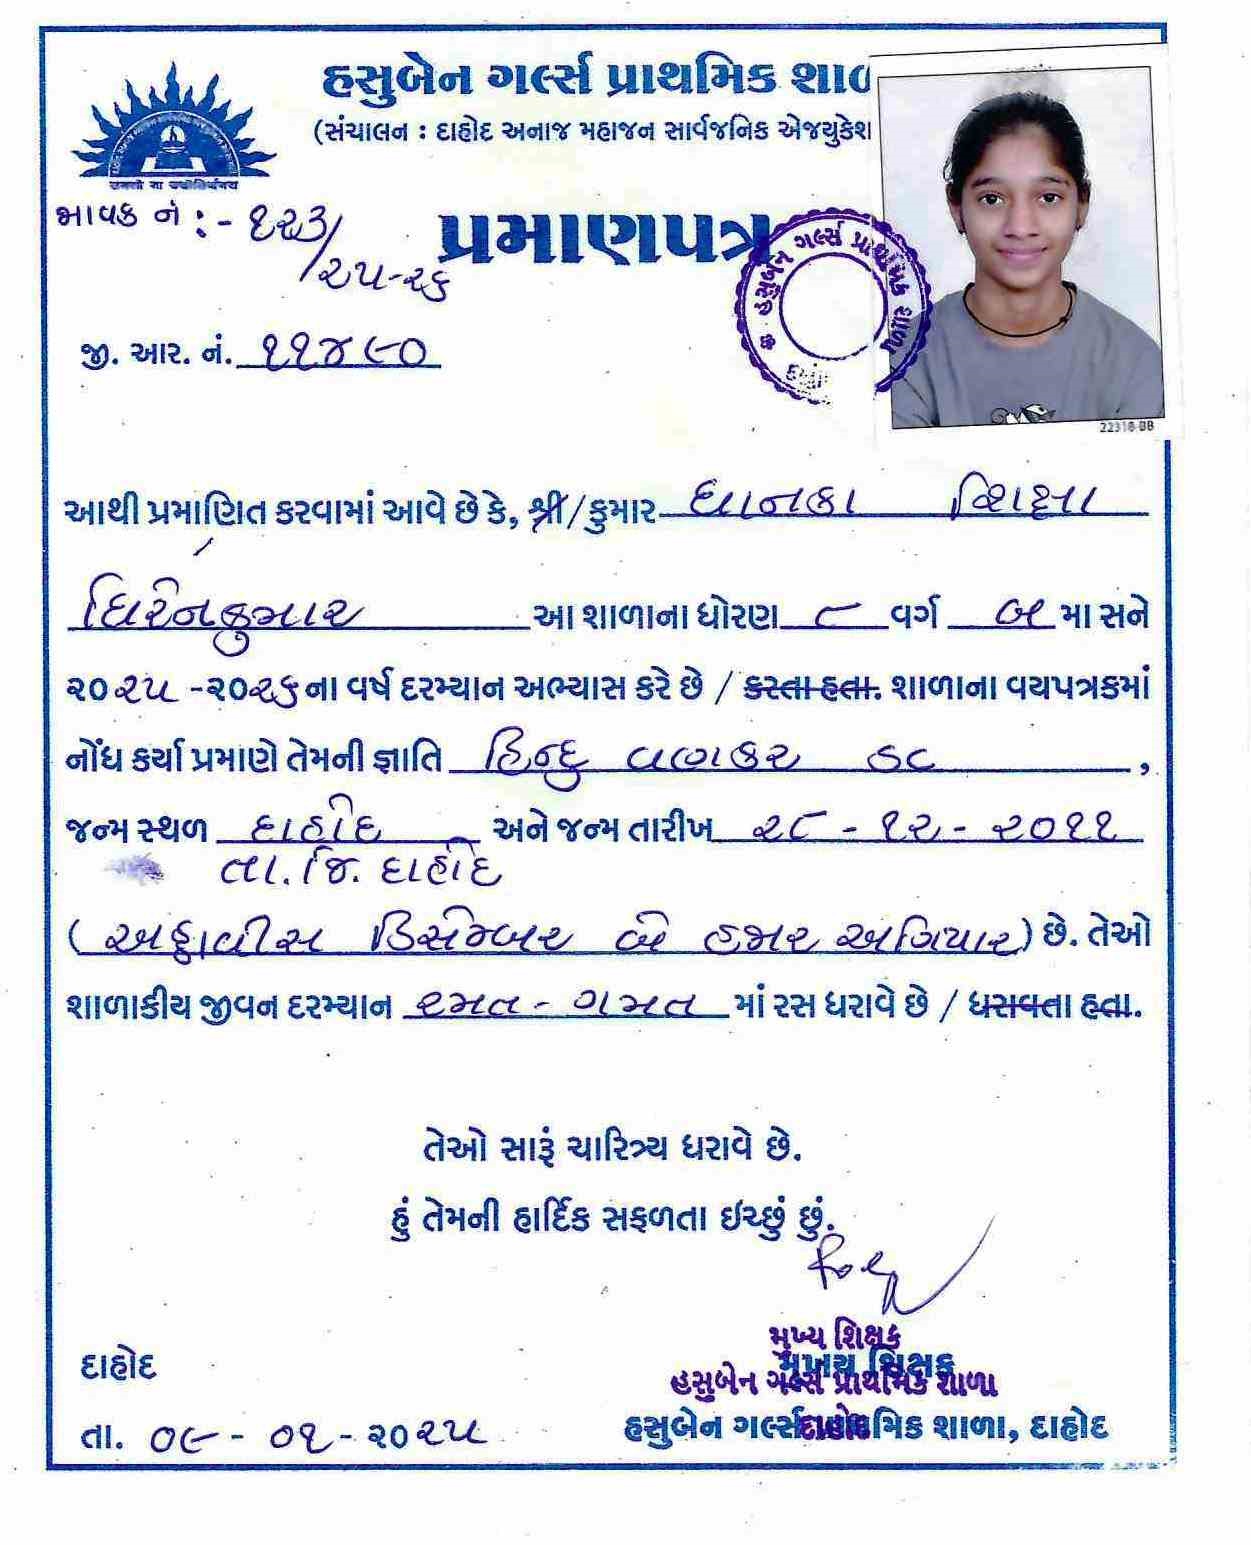 હસુબેન ગર્લ્સ પ્રાથમિક શાળ
(સંચાલન : દાહોદ અનાજ મહાજન સાર્વજનિક એજ્યુકેશ
જાવક નં :- ૧૨૩/૨૫-૨૬
પ્રમાણપત્ર
હસુબેન ગર્લ્સ પ્રાથમિક શાળા
જી. આર. નં. ૧૧૪૯૦
22318-DB
આથી પ્રમાણિત કરવામાં આવે છે કે, શ્રી/કુમાર ધાનકા શિક્ષા
ધિરેનકુમાર આ શાળાના ધોરણ ૮ વર્ગ બ મા સને
૨૦૨૫ -૨૦૨૬ ના વર્ષ દરમ્યાન અભ્યાસ કરે છે / કરતા હતા. શાળાના વયપત્રકમાં
નોંધ કર્યા પ્રમાણે તેમની જ્ઞાતિ હિન્દુ વણકર ,
જન્મ સ્થળ દાહોદ અને જન્મ તારીખ ૨૮ - ૧૨ - ૨૦૧૧
તા. જિ. દાહોદ
(અઠ્ઠાવીસ ડિસેમ્બર બે હજાર અગિયાર) છે. તેઓ
શાળાકીય જીવન દરમ્યાન રમત - ગમત માં રસ ધરાવે છે / ધરાવતા હતા.
તેઓ સારૂં ચારિત્ર્ય ધરાવે છે.
હું તેમની હાર્દિક સફળતા ઈચ્છું છું.
મુખ્ય શિક્ષક
દાહોદ
મુખ્ય શિક્ષક
હસુબેન ગર્લ્સ પ્રાથમિક શાળા
દાહોદ
તા. ૦૯ - ૦૧ - ૨૦૨૫
હસુબેન ગર્લ્સ પ્રાથમિક શાળા, દાહોદ